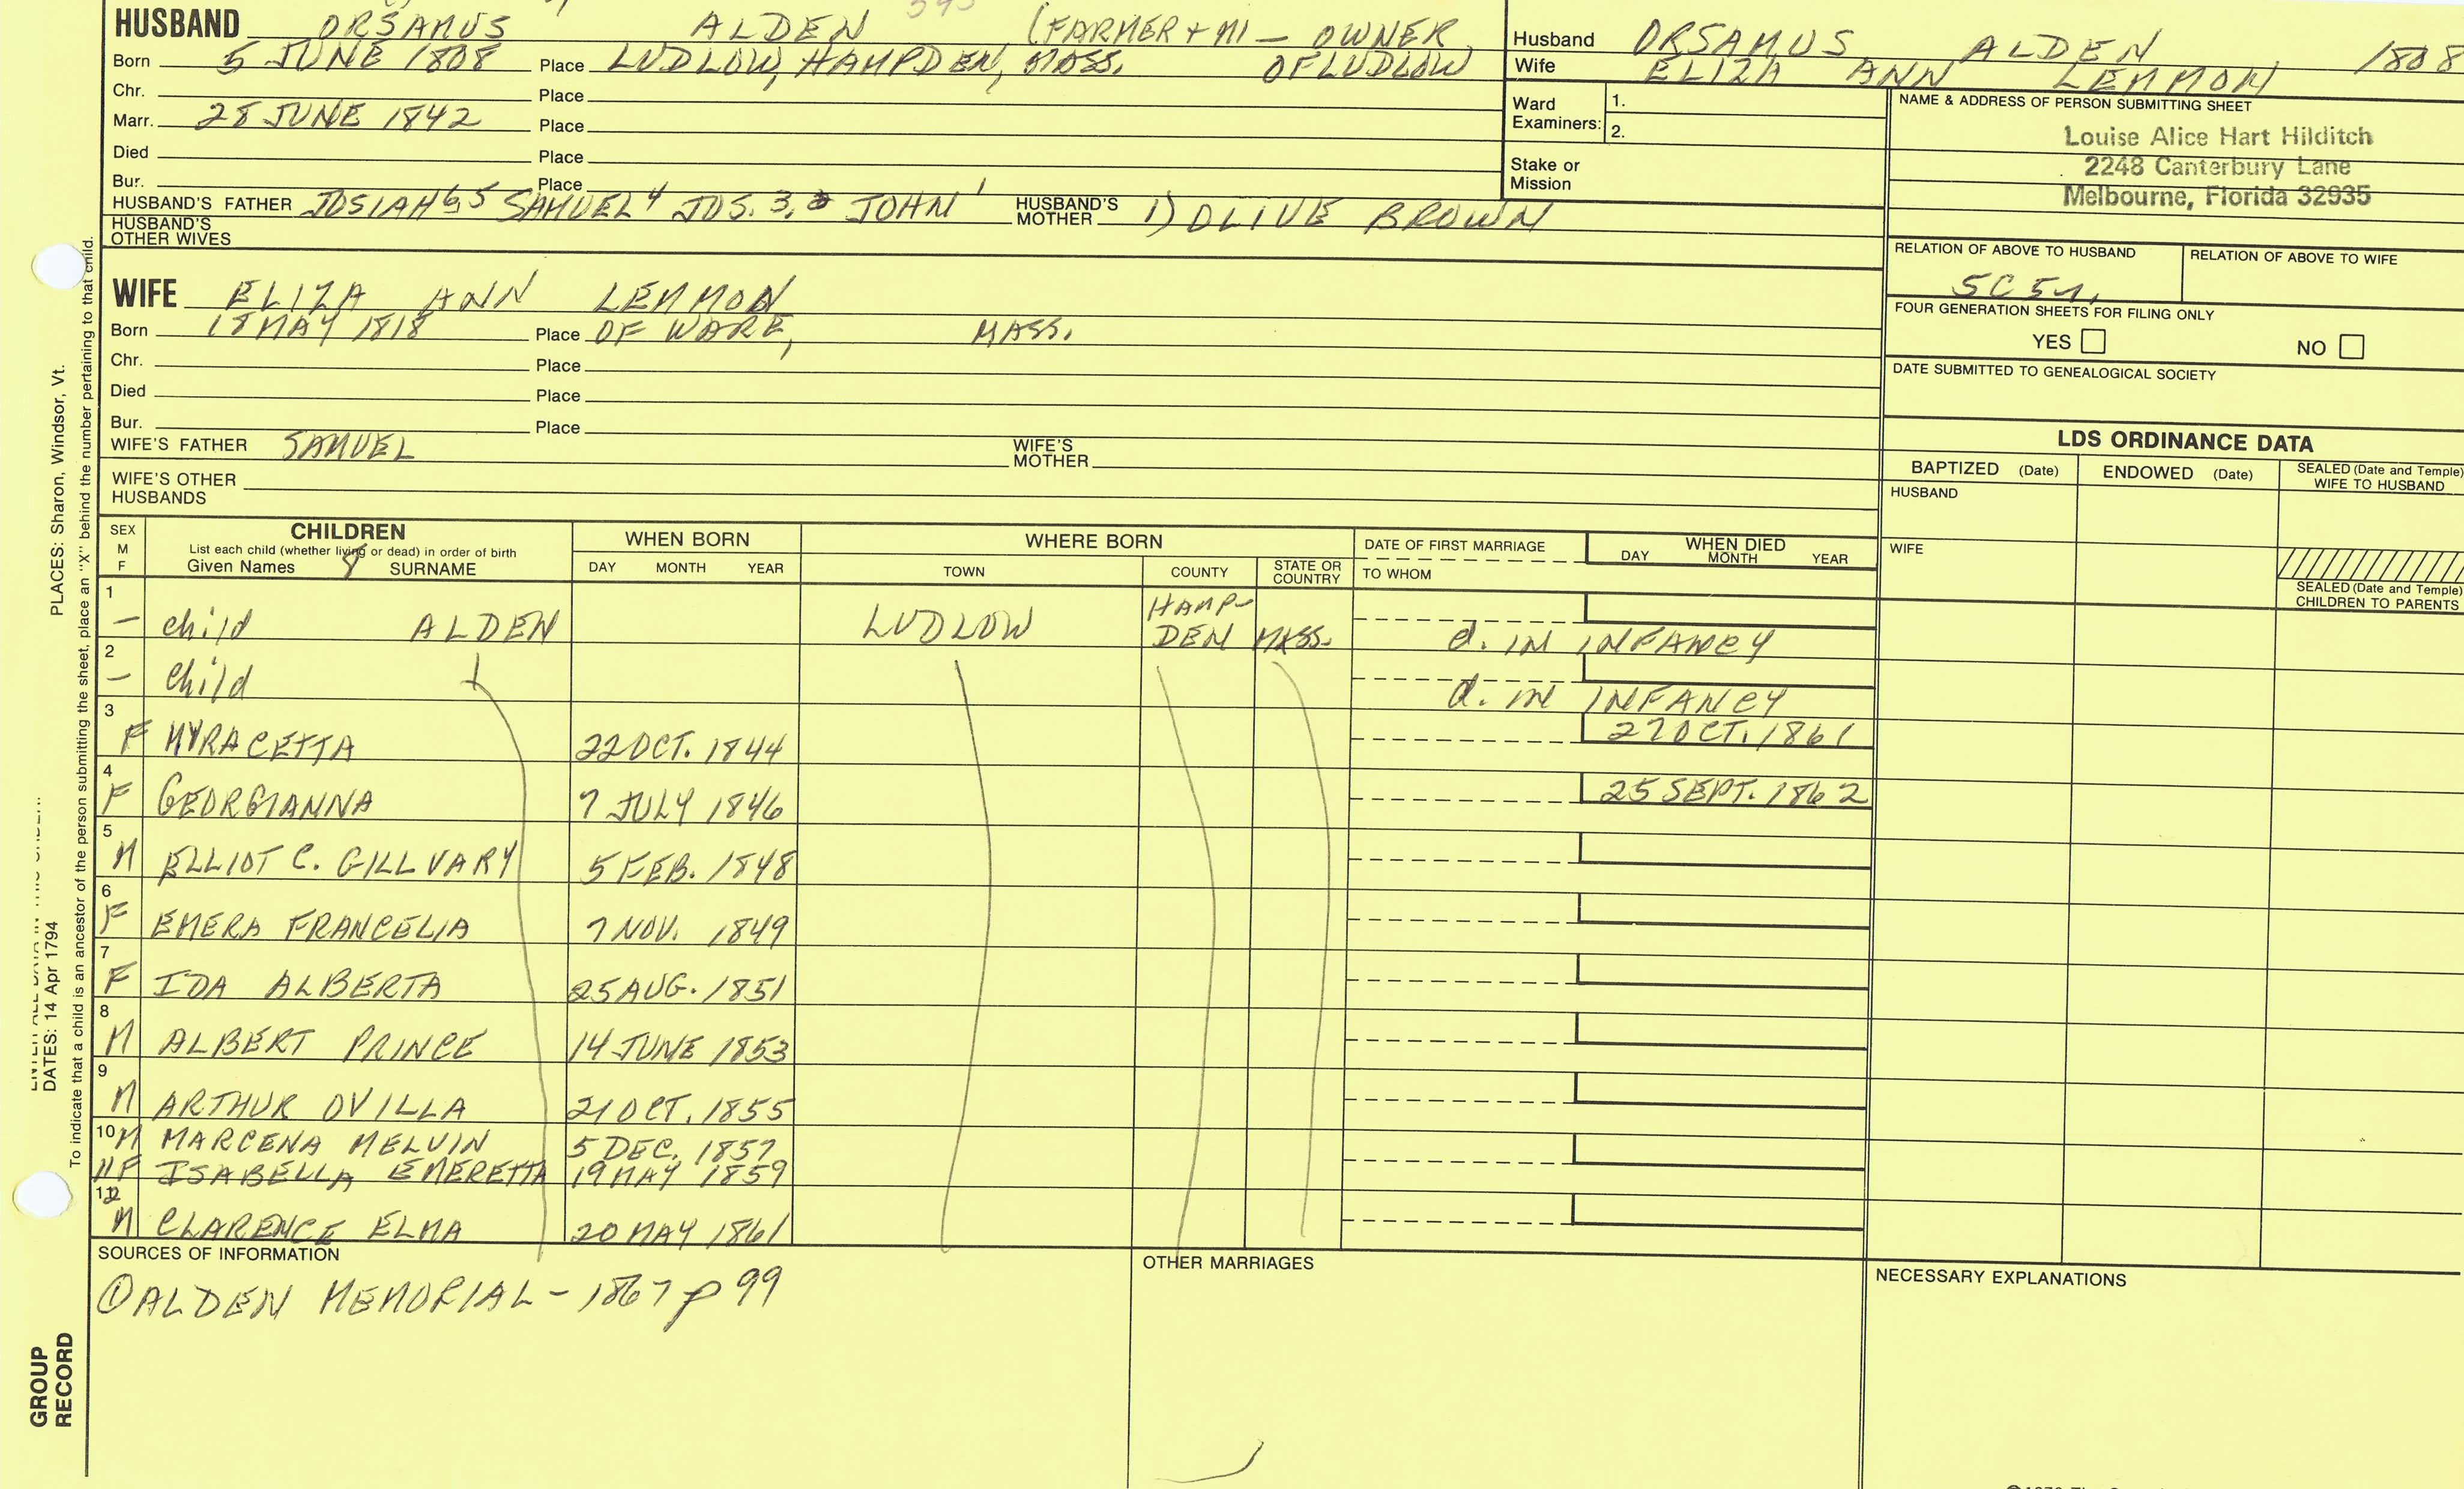 HUSBAND ORSAMUS ALDEN (FARMER + MI — OWNER
Born 5 JUNE 1808 Place LUDLOW, HAMPDEN, MASS. OF LUDLOW
Chr. Place
Marr. 28 JUNE 1842 Place
Died Place
Bur. Place
HUSBAND'S FATHER JOSIAH 6, 5 SAMUEL 4 JOS. 3, 2 JOHN 1 HUSBAND'S MOTHER 1) OLIVE BROWN
HUSBAND'S OTHER WIVES
Husband ORSAMUS ALDEN 1808
Wife ELIZA ANN LEMMON
Ward Examiners: 1.
2.
Stake or Mission
NAME & ADDRESS OF PERSON SUBMITTING SHEET
Louise Alice Hart Hilditch
2248 Canterbury Lane
Melbourne, Florida 32935
RELATION OF ABOVE TO HUSBAND RELATION OF ABOVE TO WIFE
5C5r.
FOUR GENERATION SHEETS FOR FILING ONLY
YES NO
DATE SUBMITTED TO GENEALOGICAL SOCIETY
WIFE ELIZA ANN LEMMON
Born 18 MAY 1818 Place OF WARE, MASS.
Chr. Place
Died Place
Bur. Place
WIFE'S FATHER SAMUEL WIFE'S MOTHER
WIFE'S OTHER HUSBANDS
LDS ORDINANCE DATA
BAPTIZED (Date) ENDOWED (Date) SEALED (Date and Temple) WIFE TO HUSBAND
HUSBAND
WIFE
SEALED (Date and Temple) CHILDREN TO PARENTS
SEX M F CHILDREN WHEN BORN WHERE BORN DATE OF FIRST MARRIAGE WHEN DIED
List each child (whether living or dead) in order of birth
Given Names 8 SURNAME DAY MONTH YEAR TOWN COUNTY STATE OR COUNTRY TO WHOM DAY MONTH YEAR
1 — child ALDEN LUDLOW HAMP-DEN MASS. d. IN INFANCY
2 — child d. IN INFANCY
3 F MYRACETTA 22 OCT. 1844 27 OCT. 1861
4 F GEORGIANNA 7 JULY 1846 25 SEPT. 1862
5 M ELLIOT C. GILLVARY 5 FEB. 1848
6 F EMERA FRANCELIA 7 NOV. 1849
7 F IDA ALBERTA 25 AUG. 1851
8 M ALBERT PRINCE 14 JUNE 1853
9 M ARTHUR OVILLA 21 OCT. 1855
10 M MARCENA MELVIN 5 DEC. 1857
11 F ISABELLA EMERETTA 19 MAY 1859
12 M CLARENCE ELMA 20 MAY 1861
SOURCES OF INFORMATION
① ALDEN MEMORIAL - 1867 p 99
OTHER MARRIAGES
NECESSARY EXPLANATIONS
PLACES: Sharon, Windsor, Vt.
DATES: 14 Apr 1794
To indicate that a child is an ancestor of the person submitting the sheet, place an "X" behind the number pertaining to that child.
GROUP
RECORD